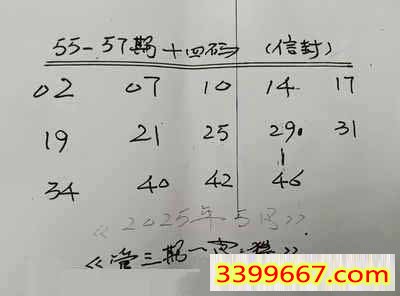 55-57期十四码 (信封)
02 07 10 14 17
19 21 25 29. 31
34 40 42 46
《2025年5月》
《管三期一定稳》
3399667.com